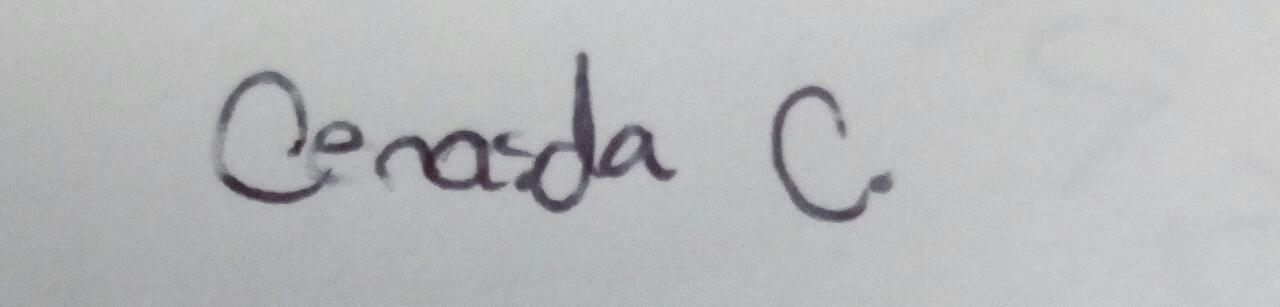 Cenasda C.